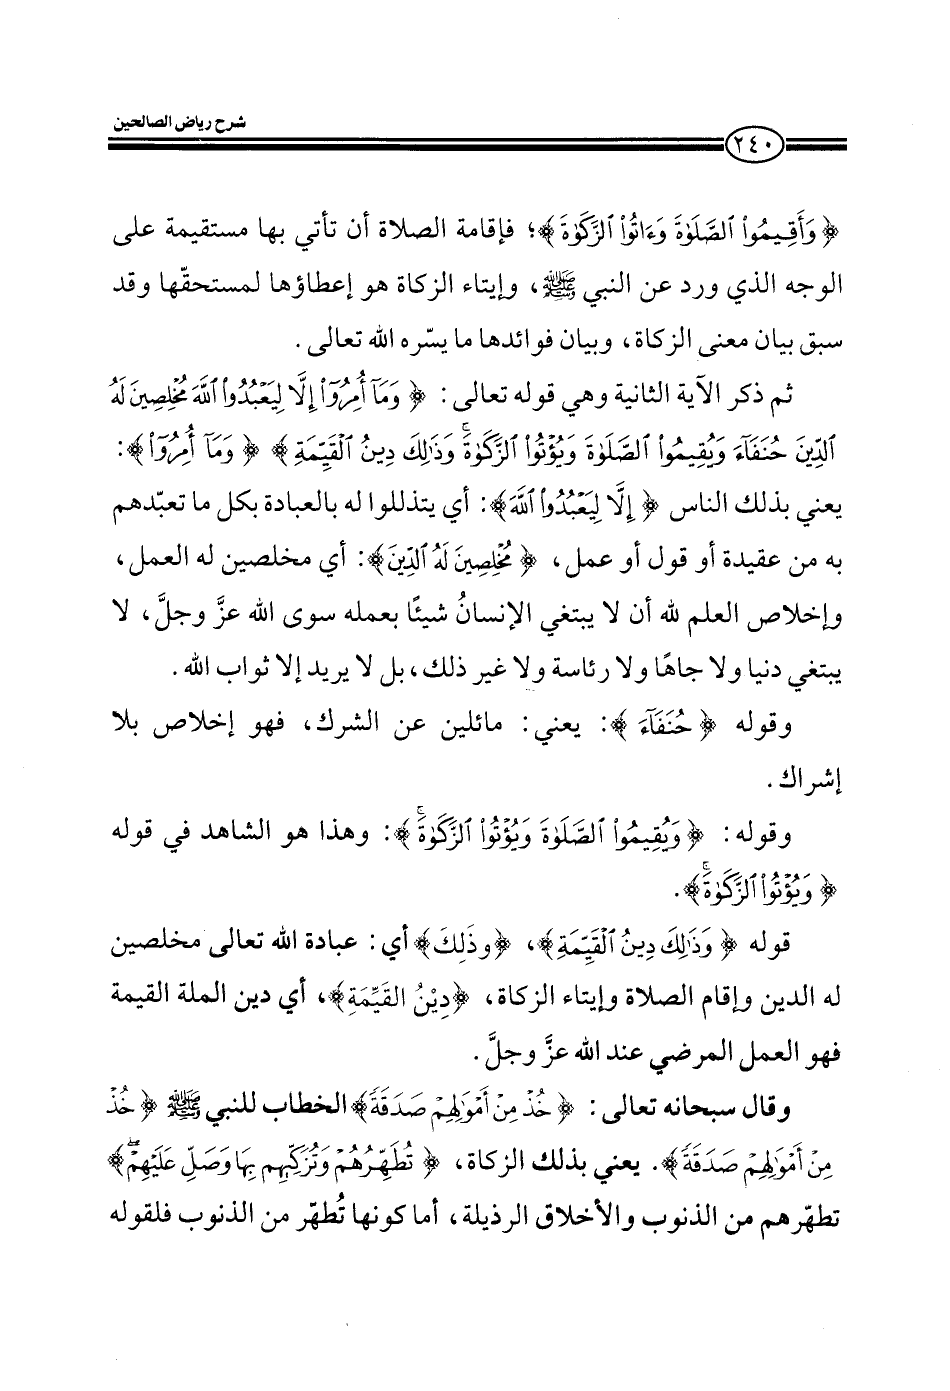 شرح رياض الصالحين
٢٤٠
﴿ وَأَقِيمُوا۟ ٱلصَّلَوٰةَ وَءَاتُوا۟ ٱلزَّكَوٰةَ ﴾؛ فإقامة الصلاة أن تأتي بها مستقيمة على
الوجه الذي ورد عن النبي ﷺ، وإيتاء الزكاة هو إعطاؤها لمستحقّها وقد
سبق بيان معنى الزكاة، وبيان فوائدها ما يسّره الله تعالى.
ثم ذكر الآية الثانية وهي قوله تعالى: ﴿ وَمَآ أُمِرُوٓا۟ إِلَّا لِيَعْبُدُوا۟ ٱللَّهَ مُخْلِصِينَ لَهُ
ٱلدِّينَ حُنَفَآءَ وَيُقِيمُوا۟ ٱلصَّلَوٰةَ وَيُؤْتُوا۟ ٱلزَّكَوٰةَۚ وَذَٰلِكَ دِينُ ٱلْقَيِّمَةِ ﴾ ﴿ وَمَآ أُمِرُوٓا۟ ﴾:
يعني بذلك الناس ﴿ إِلَّا لِيَعْبُدُوا۟ ٱللَّهَ ﴾: أي يتذللوا له بالعبادة بكل ما تعبّدهم
به من عقيدة أو قول أو عمل، ﴿ مُخْلِصِينَ لَهُ ٱلدِّينَ ﴾: أي مخلصين له العمل،
وإخلاص العلم لله أن لا يبتغي الإنسانُ شيئًا بعمله سوى الله عزَّ وجلَّ، لا
يبتغي دنيا ولا جاهًا ولا رئاسة ولا غير ذلك، بل لا يريد إلا ثواب الله.
وقوله ﴿ حُنَفَآءَ ﴾: يعني: مائلين عن الشرك، فهو إخلاص بلا
إشراك.
وقوله: ﴿ وَيُقِيمُوا۟ ٱلصَّلَوٰةَ وَيُؤْتُوا۟ ٱلزَّكَوٰةَۚ ﴾: وهذا هو الشاهد في قوله
﴿ وَيُؤْتُوا۟ ٱلزَّكَوٰةَۚ ﴾.
قوله ﴿ وَذَٰلِكَ دِينُ ٱلْقَيِّمَةِ ﴾، ﴿وذَلِكَ﴾ أي: عبادة الله تعالى مخلصين
له الدين وإقام الصلاة وإيتاء الزكاة، ﴿دِيْنُ القَيِّمَةِ﴾، أي دين الملة القيمة
فهو العمل المرضي عند الله عزَّ وجلَّ.
وقال سبحانه تعالى: ﴿ خُذْ مِنْ أَمْوَٰلِهِمْ صَدَقَةً ﴾ الخطاب للنبي ﷺ ﴿ خُذْ
مِنْ أَمْوَٰلِهِمْ صَدَقَةً ﴾. يعني بذلك الزكاة، ﴿ تُطَهِّرُهُمْ وَتُزَكِّيهِم بِهَا وَصَلِّ عَلَيْهِمْۖ ﴾
تطهّرهم من الذنوب والأخلاق الرذيلة، أما كونها تُطهّر من الذنوب فلقوله